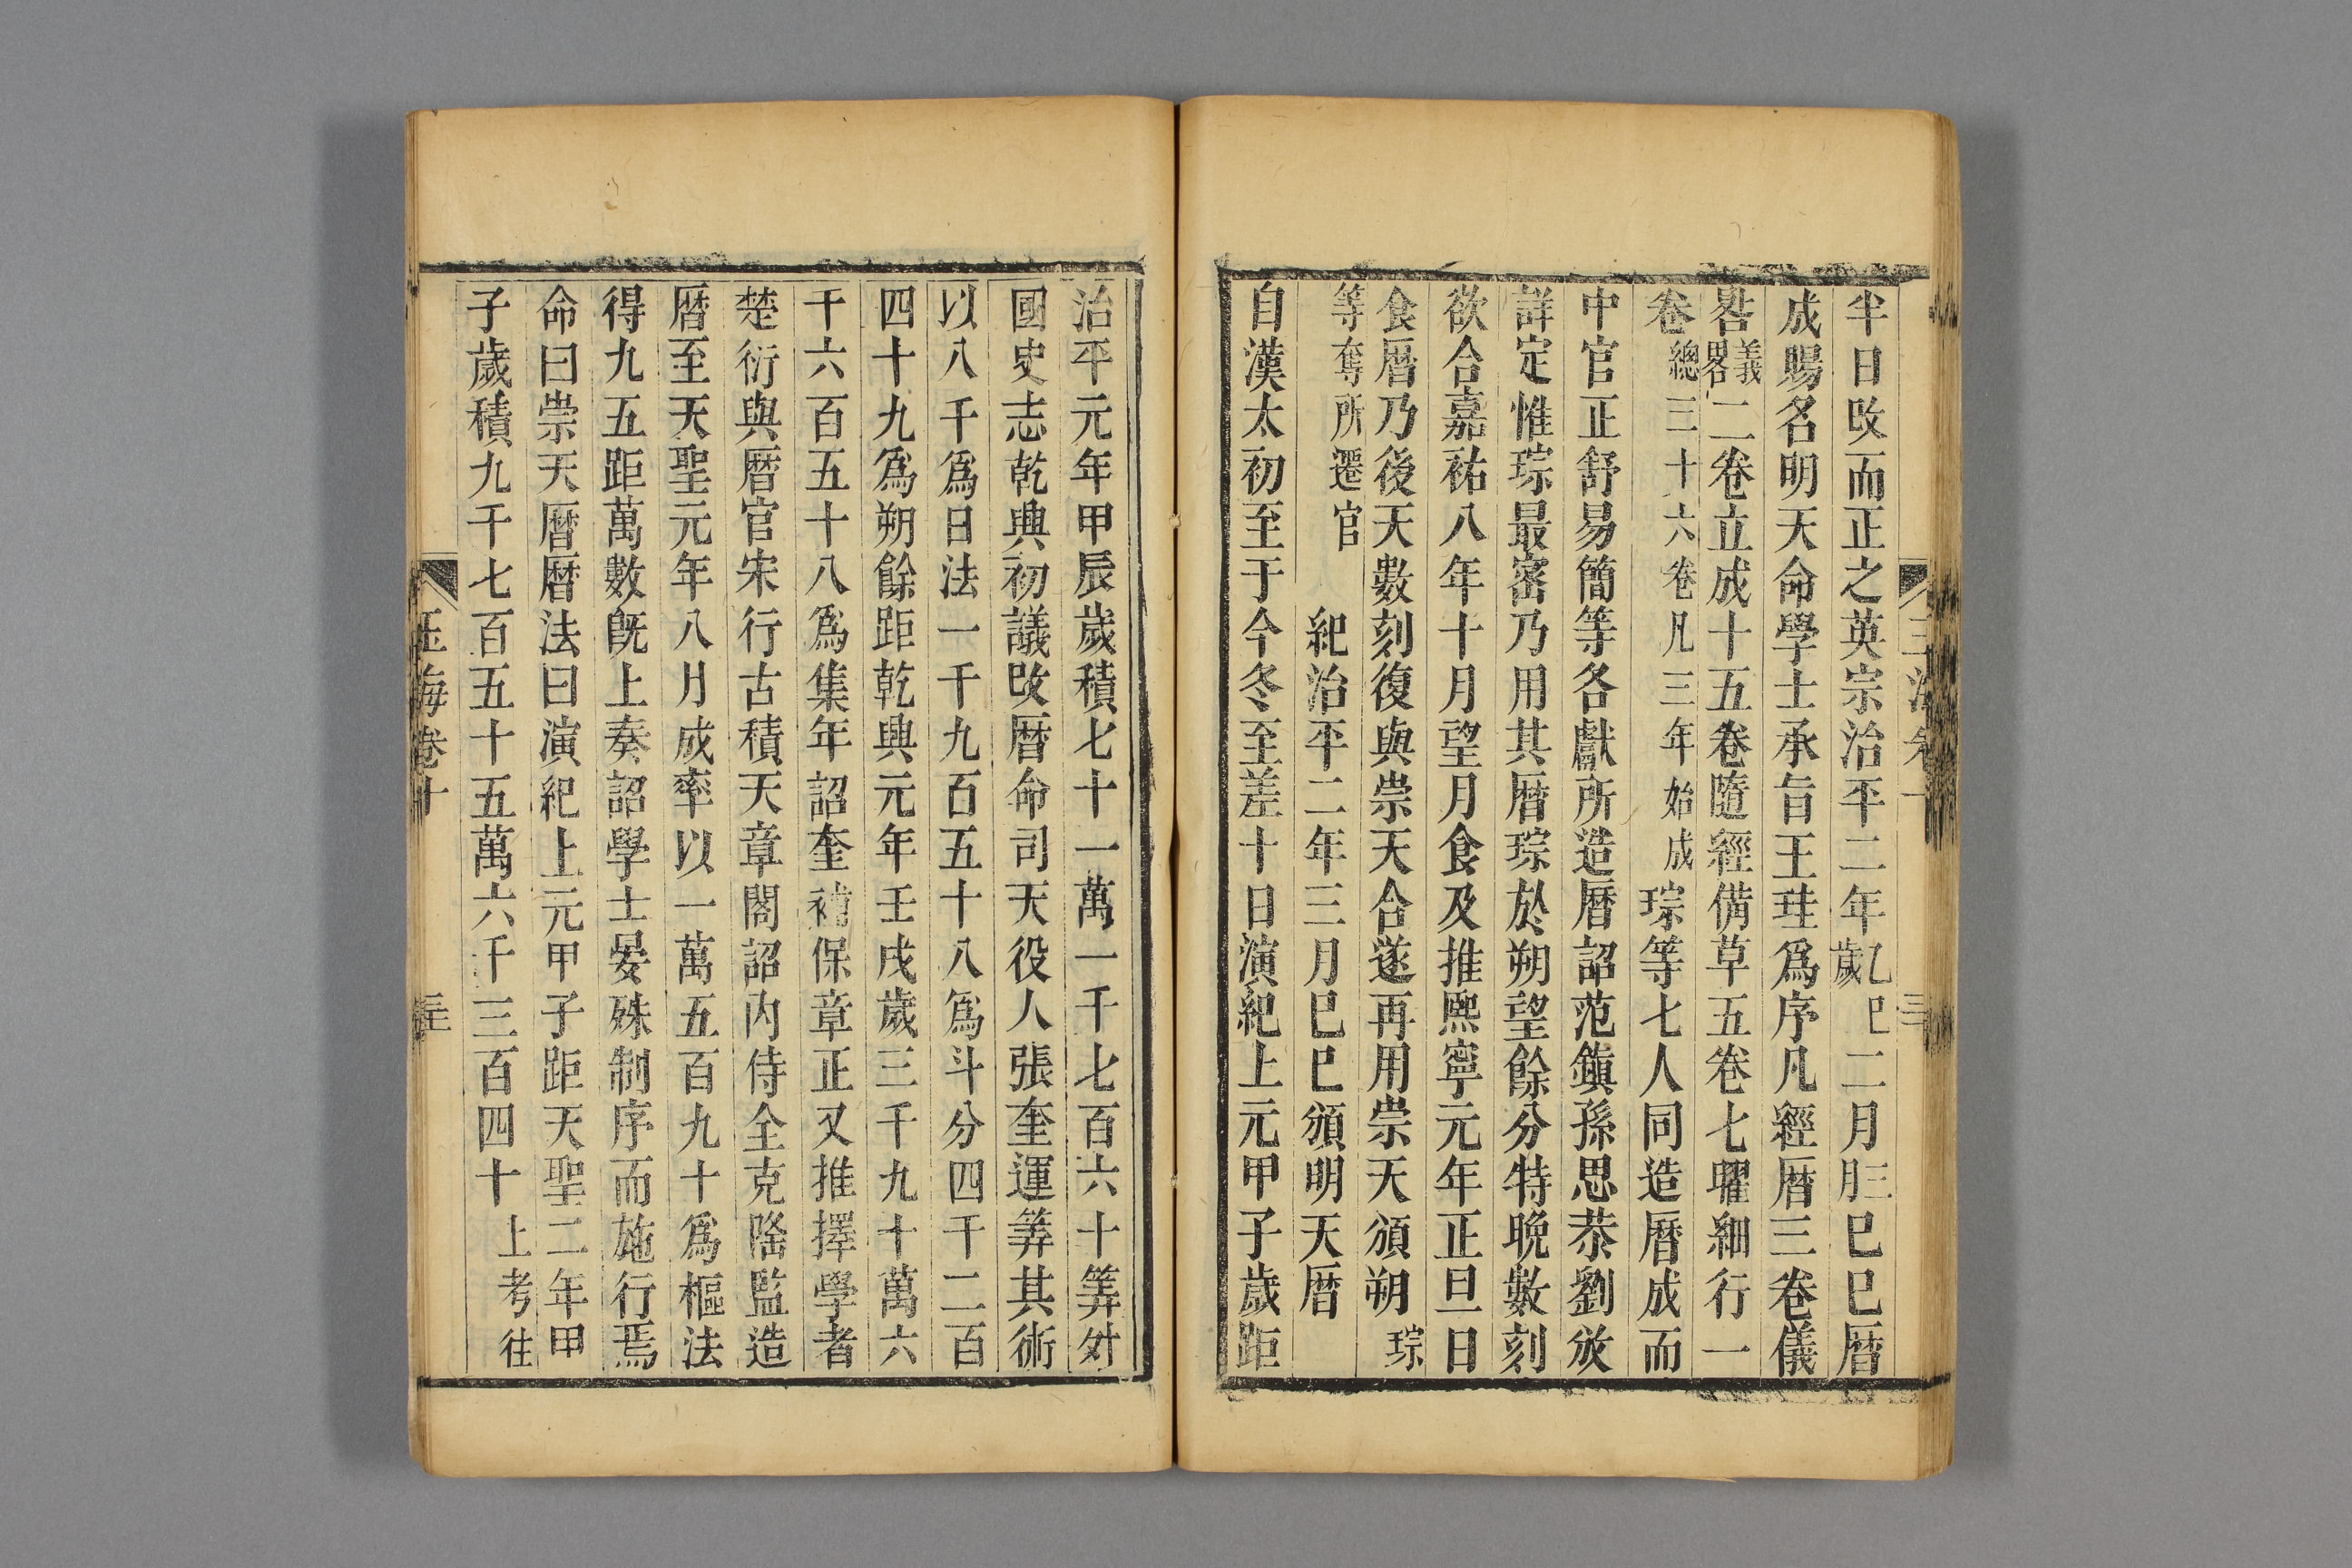 半日攺而正之英宗治平二年乙巳歲二月三月巳巳曆
成賜名明天命學士承旨王珪爲序凡經曆三卷儀
畧義畧二卷立成十五卷隨經備草五卷七曜細行一
卷總三十六卷凡三年始成琮等七人同造曆成而
中官正舒易簡等各獻所造曆詔范鎮孫思恭劉攽
詳定惟琮最密乃用其曆琮於朔望餘分特晚數刻
欲合嘉祐八年十月望月食及推熙寧元年正旦日
食曆乃後天數刻復與崇天合遂再用崇天頒朔琮
等奪所遷官紀治平二年三月巳巳頒明天曆
自漢太初至于今冬至差十日演紀上元甲子歲距
治平元年甲辰歲積七十一萬一千七百六十筭外
國史志乾興初議攺曆命司天役人張奎運筭其術
以八千爲日法一千九百五十八爲斗分四千二百
四十九爲朔餘距乾興元年壬戌歲三千九十萬六
千六百五十八爲集年詔奎補保章正又推擇學者
楚衍與曆官宋行古積天章閣詔内侍金克隆監造
曆至天聖元年八月成率以一萬五百九十爲樞法
得九五距萬數旣上奏詔學士晏殊制序而施行焉
命曰崇天曆曆法曰演紀上元甲子距天聖二年甲
子歲積九千七百五十五萬六千三百四十上考往
玉海卷十